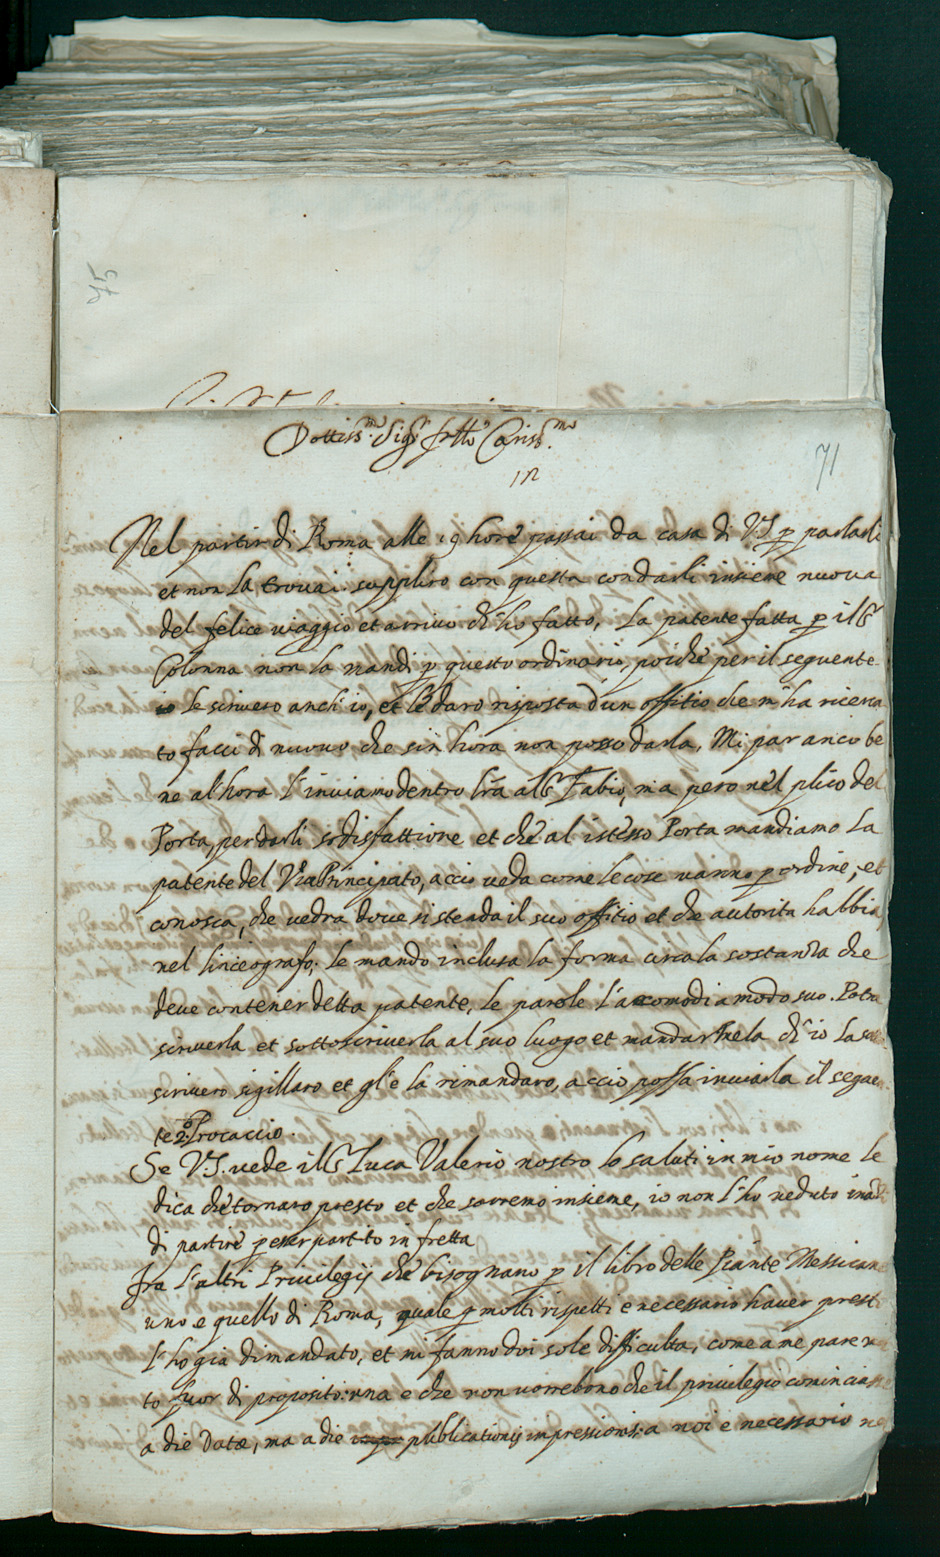 75
Dottiss.mo Sig.r fr̃llo Cariss.mo
71
Nel partir di Roma alle 19 hore passai da casa di V.S. p parlarli
et non la trovai: suppliro con questa con darli insieme nuova
del felice viaggio et arrivo ch'ho fatto, La patente fatta p il S.r
Colonna non la mandi p questo ordinario, poiche per il seguente
io le scrivero anch'io, et le daro risposta d'un offitio che m'ha ricerca
to facci di nuovo che sin hora non posso darla, Mi par anco be
ne al'hora l'inviamo dentro l'r̃a al S.r Fabio, ma pero nel plico del
Porta, per darli sodisfattione et che al istesso Porta mandiamo la
patente del ViaPrincipato, accio veda come le cose vanno p ordine, et
conosca, che vedra dove si stenda il suo offitio et che autorita habbia
nel linceografo; le mando inclusa la forma circa la sostanza che
deve contener detta patente, le parole l'accomodi a modo suo. Potra
scriverla et sottoscriverla al suo luogo et mandarmela ch'io la
scrivero sigillaro et gl'e la rimandaro, accio possa inviarla il segue
te Procaccio.
Se V.S. vede il S.r Luca Valerio nostro lo saluti in mio nome le
dica che tornaro presto et che saremo insieme, io non l'ho veduto
di partire p esser partito in fretta
fra l'altri Privilegij che bisognano p il libro delle Piante Messicane
uno e quello di Roma, quale p molti rispetti e necessario haver presto
l'ho gia dimandato, et mi fanno doi sole difficulta, come a me pare
to fuor di proposito: una e che non vorrebono che il privilegio cominciasse
a die Datæ, ma a die publicationis impressionis: a noi e necessario